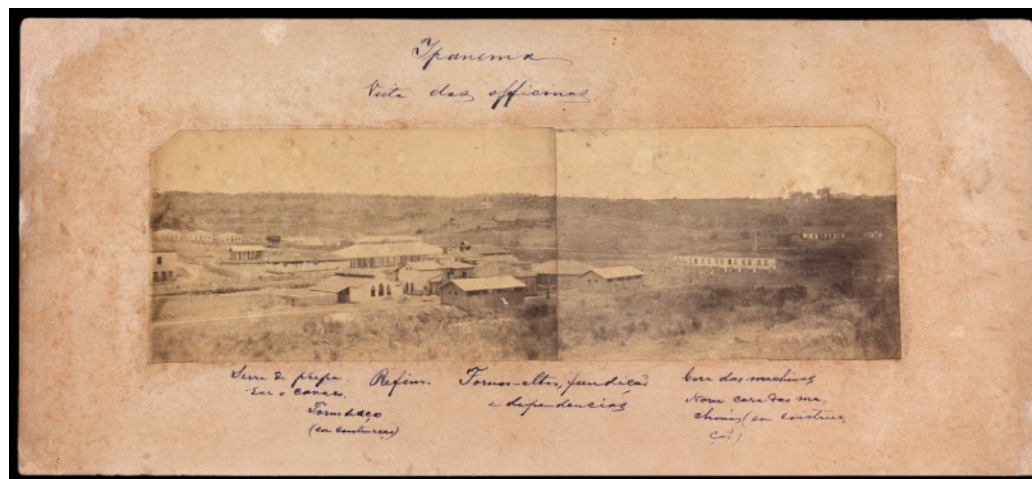 Ipanema
Vista das officinas.
Serra de prepa
rar o cavaco.
Forno d'aço
(em construcção)
Refino.
Fornos-altos, fundição
e dependencias
Casa das machinas
Nova casa das ma
chinas (em construc
ção)